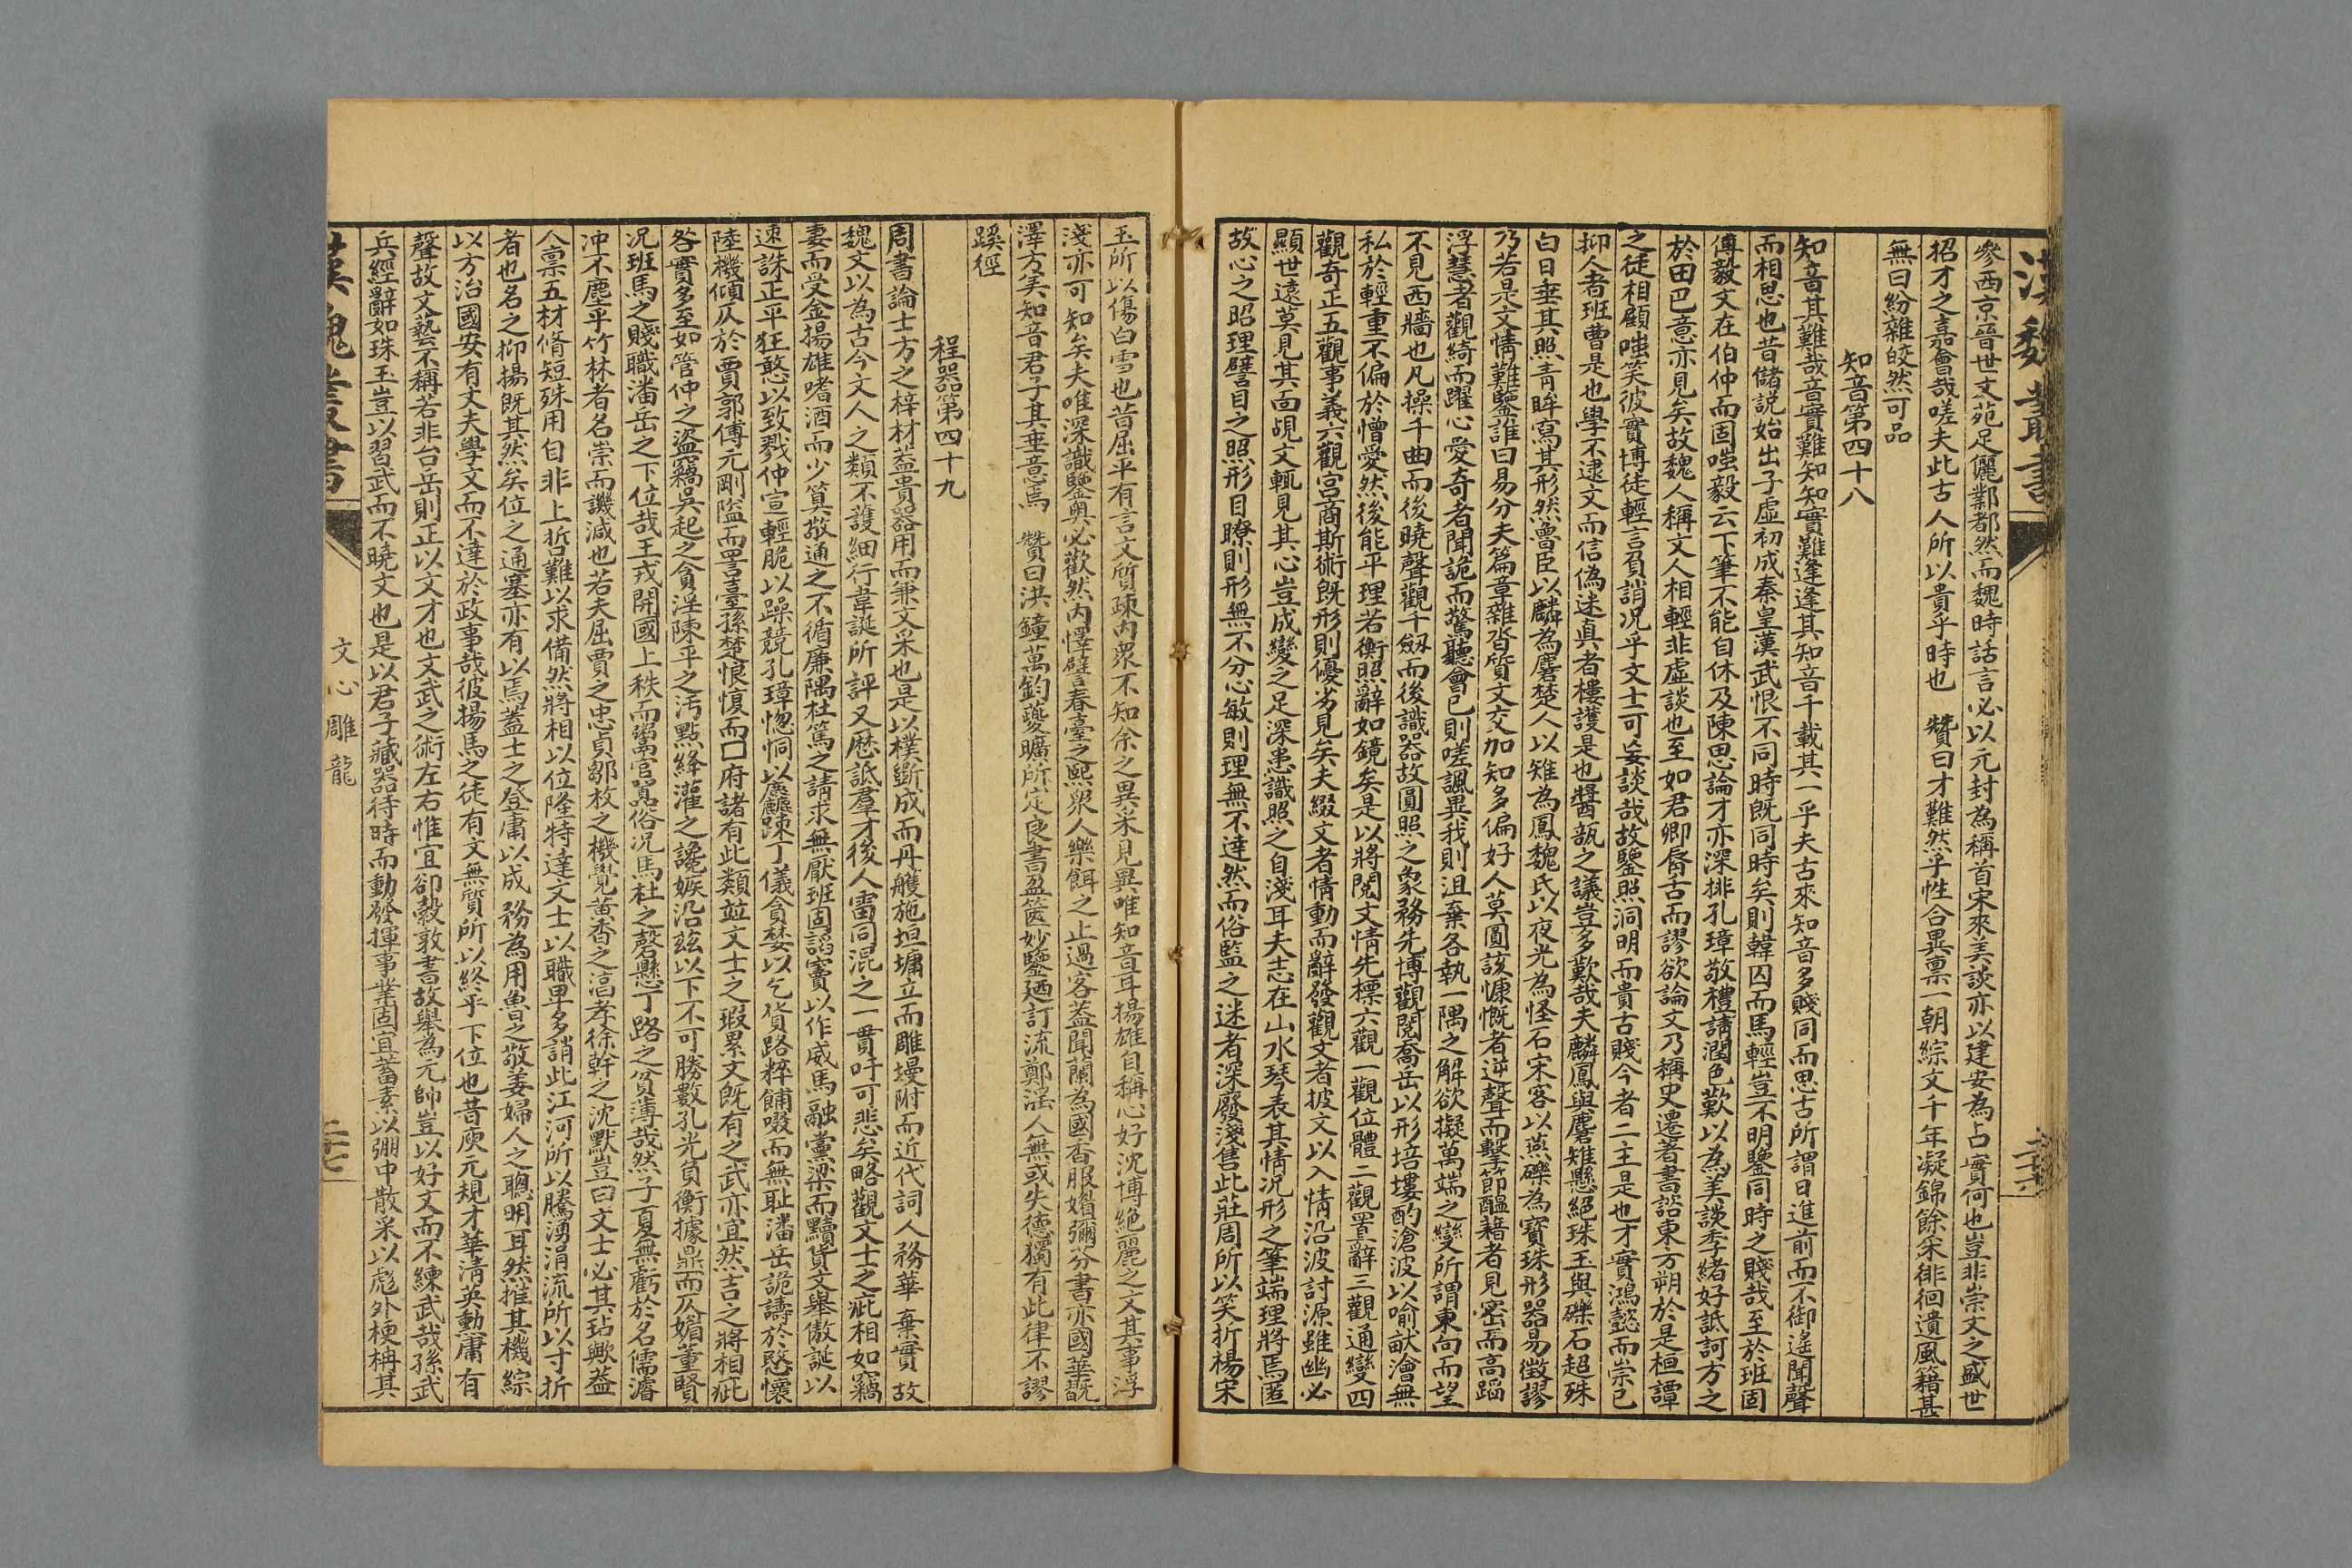 漢魏叢書
參西京晉世文苑足儷鄴都然而魏時話言必以元封為稱首宋來美談亦以建安為口實何也豈非崇文之盛世
招才之嘉會哉嗟夫此古人所以貴乎時也　贊曰才難然乎性合異稟一朝綜文千年凝錦餘采徘徊遺風籍甚
無曰紛雜皎然可品
知音第四十八
知音其難哉音實難知知實難逢逢其知音千載其一乎夫古來知音多賤同而思古所謂日進前而不御遙聞聲
而相思也昔儲說始出子虛初成秦皇漢武恨不同時既同時矣則韓囚而馬輕豈不明鑒同時之賤哉至於班固
傅毅文在伯仲而固嗤毅云下筆不能自休及陳思論才亦深排孔璋敬禮請潤色歎以為美談季緒好詆訶方之
於田巴意亦見矣故魏人稱文人相輕非虛談也至如君卿脣舌而謬欲論文乃稱史遷著書諮東方朔於是桓譚
之徒相顧嗤笑彼實博徒輕言負誚況乎文士可妄談哉故鑒照洞明而貴古賤今者二主是也才實鴻懿而崇己
抑人者班曹是也學不逮文而信偽迷真者樓護是也醬瓿之議豈多歎哉夫麟鳳與麏雉懸絕珠玉與礫石超殊
白日垂其照青眸寫其形然魯臣以麟為麏楚人以雉為鳳魏氏以夜光為怪石宋客以燕礫為寶珠形器易徵謬
乃若是文情難鑒誰曰易分夫篇章雜沓質文交加知多偏好人莫圓該慷慨者逆聲而擊節醞藉者見密而高蹈
浮慧者觀綺而躍心愛奇者聞詭而驚聽會己則嗟諷異我則沮棄各執一隅之解欲擬萬端之變所謂東向而望
不見西牆也凡操千曲而後曉聲觀千劔而後識器故圓照之象務先博觀閱喬岳以形培塿酌滄波以喻畎澮無
私於輕重不偏於憎愛然後能平理若衡照辭如鏡矣是以將閱文情先標六觀一觀位體二觀置辭三觀通變四
觀奇正五觀事義六觀宮商斯術既形則優劣見矣夫綴文者情動而辭發觀文者披文以入情沿波討源雖幽必
顯世遠莫見其面覘文輒見其心豈成變之足深患識照之自淺耳夫志在山水琴表其情況形之筆端理將焉匿
故心之昭理譬目之照形目瞭則形無不分心敏則理無不達然而俗監之迷者深廢淺售此莊周所以笑折楊宋
玉所以傷白雪也昔屈平有言文質疎內眾不知余之異采見異唯知音耳揚雄自稱心好沈博絕麗之文其事浮
淺亦可知矣夫唯深識鑒奧必歡然內懌譬春臺之熙眾人樂餌之止過客蓋聞蘭為國香服媚彌芬書亦國華翫
澤方美知音君子其垂意焉　贊曰洪鐘萬鈞夔曠所定良書盈篋妙鑒廼訂流鄭淫人無或失德獨有此律不謬
蹊徑
程器第四十九
周書論士方之梓材蓋貴器用而兼文采也是以樸斲成而丹雘施垣墉立而雕墁附而近代詞人務華棄實故
魏文以為古今文人之類不護細行韋誕所評又歷詆羣才後人雷同混之一貫吁可悲矣略觀文士之疵相如竊
妻而受金揚雄嗜酒而少算敬通之不循廉隅杜篤之請求無厭班固諂竇以作威馬融黨梁而黷貨文舉傲誕以
速誅正平狂憨以致戮仲宣輕脆以躁競孔璋惚恫以麤疎丁儀貪婪以乞貨路粹餔啜而無耻潘岳詭譸於愍懷
陸機傾仄於賈郭傅元剛隘而詈臺孫楚悢愎而□府諸有此類並文士之瑕累文既有之武亦宜然古之將相疵
咎實多至如管仲之盜竊吳起之貪淫陳平之汚點絳灌之讒嫉沿茲以下不可勝數孔光負衡據鼎而仄媚董賢
況班馬之賤職潘岳之下位哉王戎開國上秩而鬻官囂俗況馬杜之磬懸丁路之貧薄哉然子夏無虧於名儒濬
沖不塵乎竹林者名崇而譏減也若夫屈賈之忠貞鄒枚之機覺黃香之淳孝徐幹之沈默豈曰文士必其玷歟蓋
人稟五材脩短殊用自非上哲難以求備然將相以位隆特達文士以職卑多誚此江河所以騰湧涓流所以寸折
者也名之抑揚既其然矣位之通塞亦有以焉蓋士之登庸以成務為用魯之敬姜婦人之聰明耳然推其機綜
以方治國安有丈夫學文而不達於政事哉彼揚馬之徒有文無質所以終乎下位也昔庾元規才華清英勳庸有
聲故文藝不稱若非台岳則正以文才也文武之術左右惟宜郤縠敦書故舉為元帥豈以好文而不練武哉孫武
兵經辭如珠玉豈以習武而不曉文也是以君子藏器待時而動發揮事業固宜蓄素以弸中散采以彪外楩柟其
漢魏叢書
文心雕龍
二十七